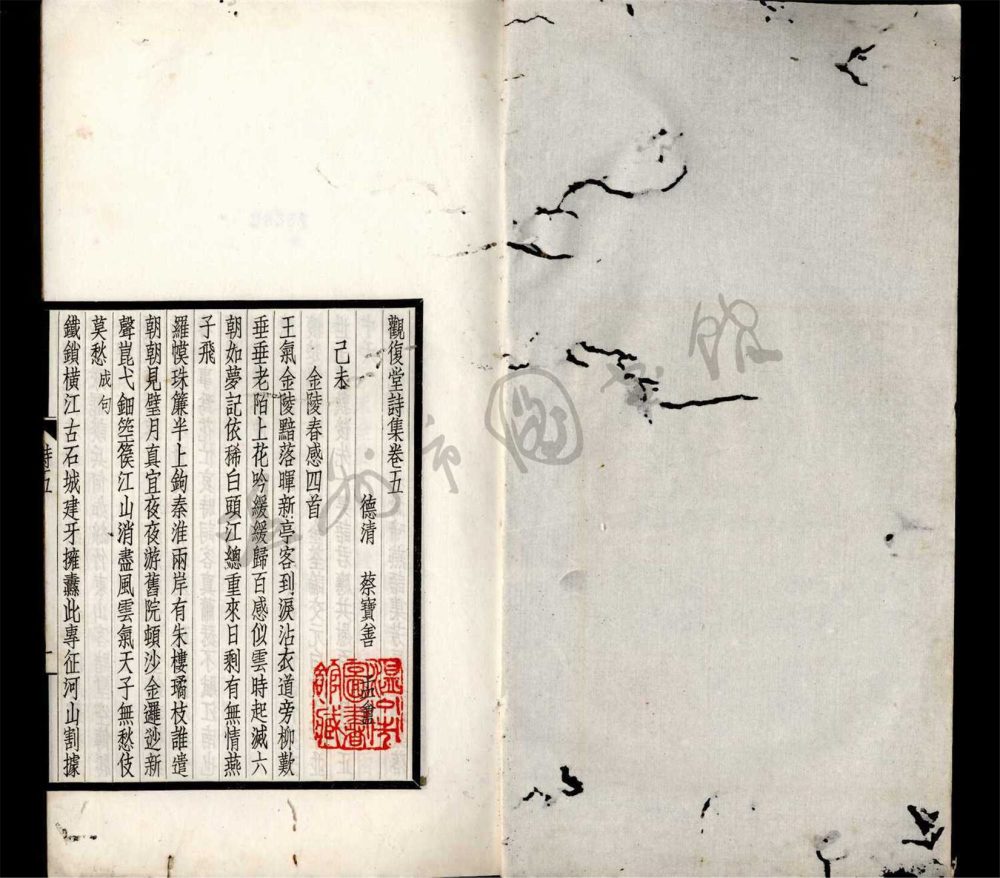 觀復堂詩集卷五
德清 蔡寶善 孟畬
己未
金陵春感四首
王氣金陵黯落暉新亭客到淚沾衣道旁柳歎
垂垂老陌上花吟緩緩歸百感似雲時起滅六
朝如夢記依稀白頭江總重來日剩有無情燕
子飛
羅幙珠簾半上鉤秦淮兩岸有朱樓璚枝誰遣
朝朝見璧月真宜夜夜游舊院頓沙金邐迆新
聲崑弋鈿箜篌江山消盡風雲氣天子無愁伎
莫愁成句
鐵鎖橫江古石城建牙擁纛此專征河山割據
詩五
一
溫州市圖書館藏
溫州市圖書館